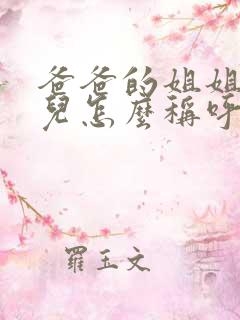 爸爸的姐姐
兒怎麼稱呼
羅玉文